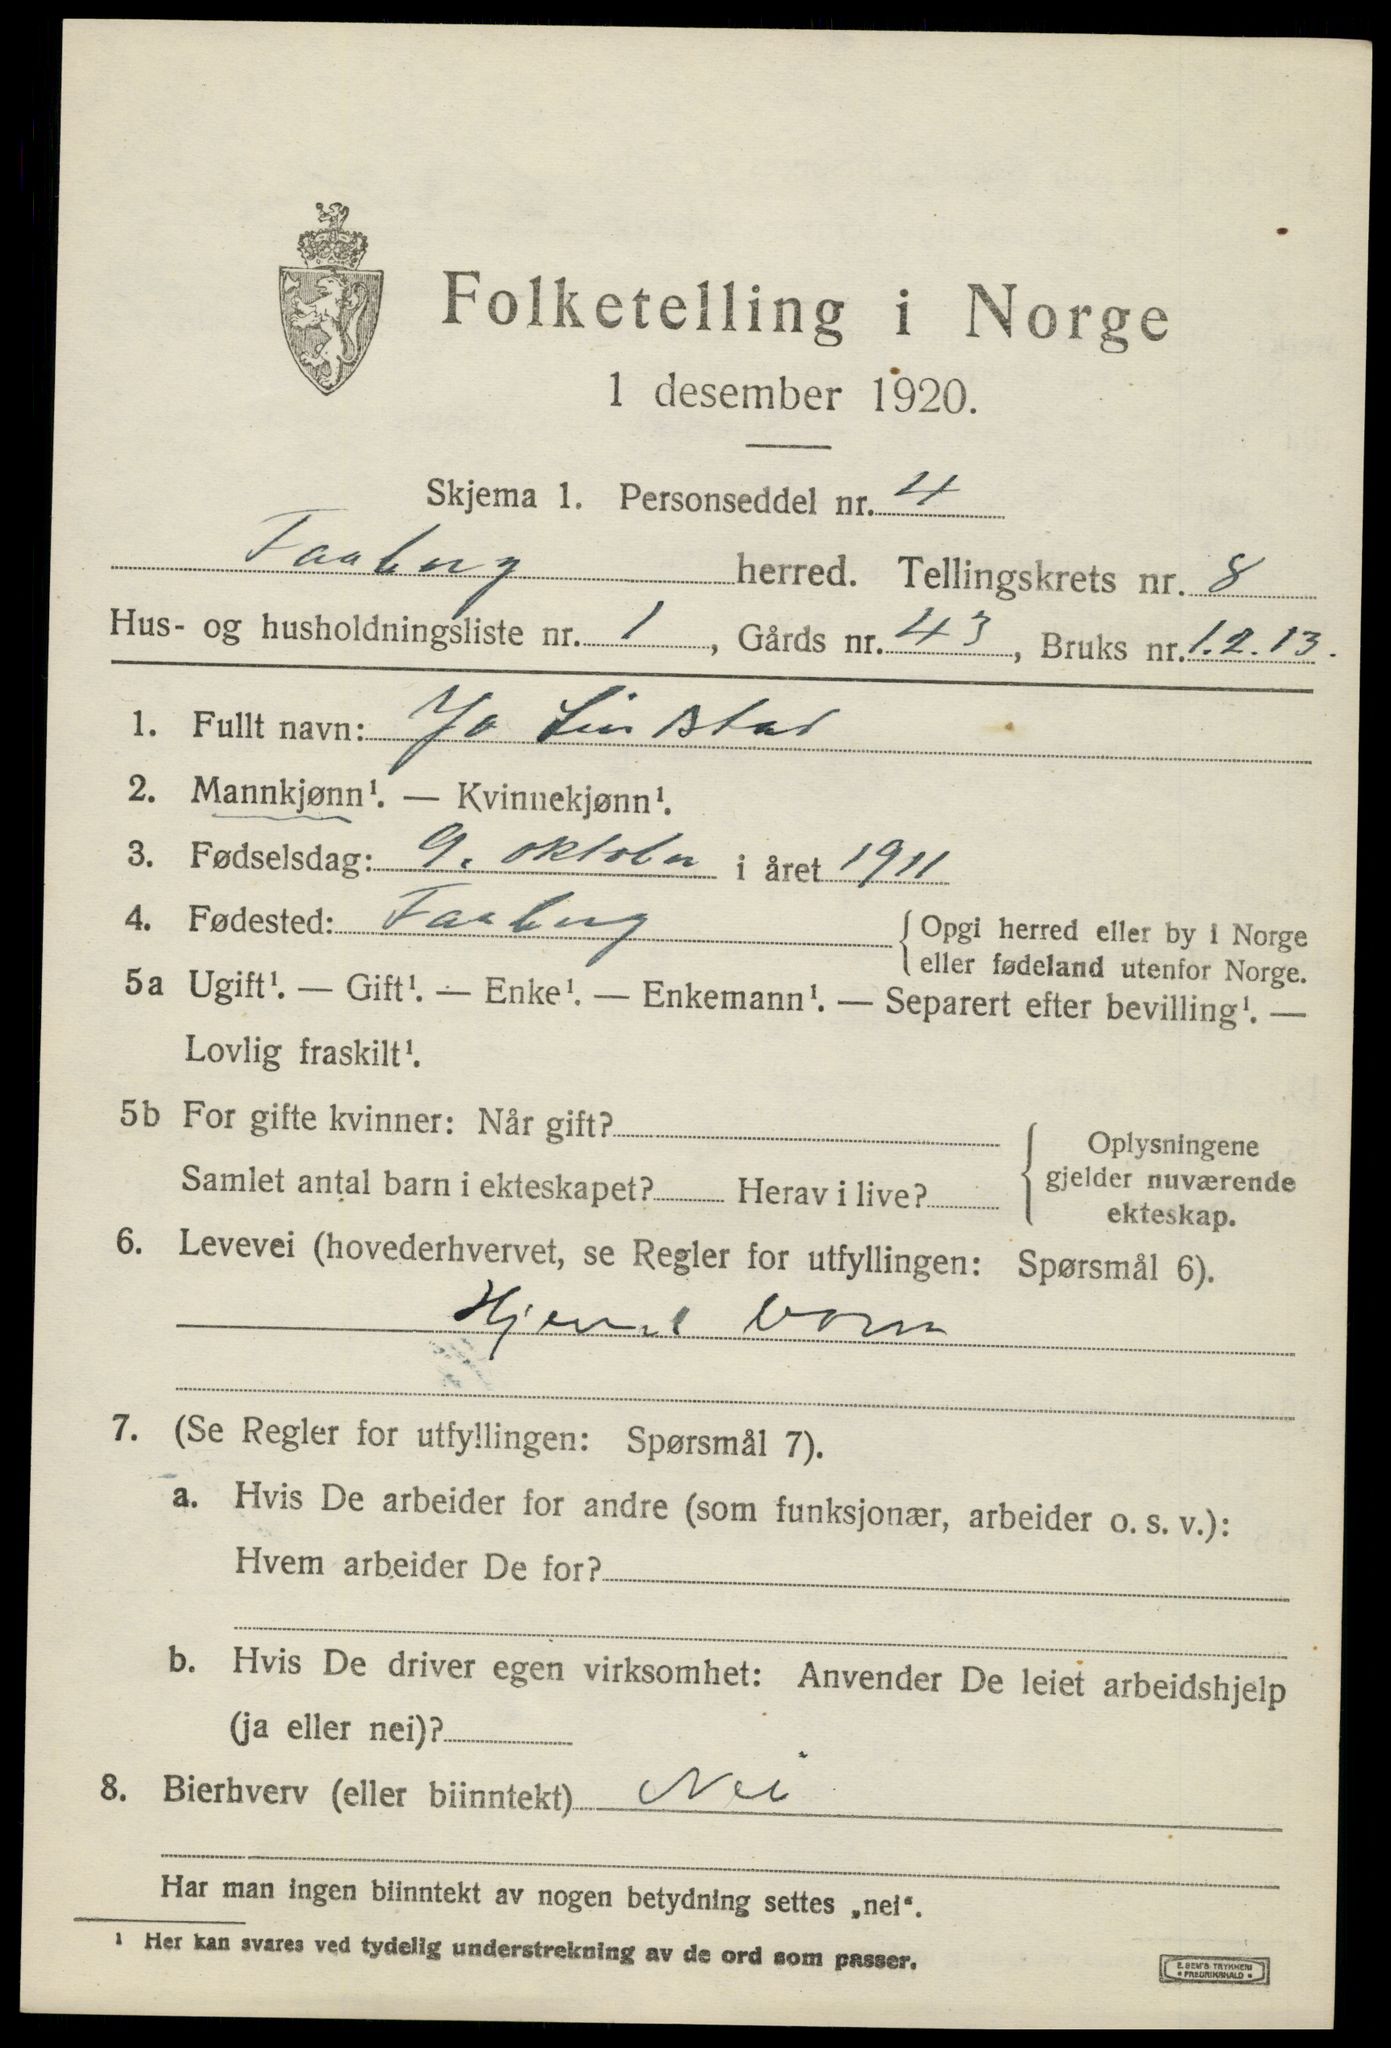 Folketelling i Norge
1 desember 1920.
Skjema 1. Personseddel nr. 4
Faaberg herred. Tellingskrets nr. 8
Hus- og husholdningsliste nr. 1, Gårds nr. 43, Bruks nr. 1.2.13.
1. Fullt navn: Jo Lindstad
2. Mannkjønn¹. — Kvinnekjønn¹.
3. Fødselsdag: 9. oktober i året 1911
4. Fødested: Faaberg { Opgi herred eller by i Norge
eller fødeland utenfor Norge.
5a Ugift¹. — Gift¹. — Enke¹. — Enkemann¹. — Separert efter bevilling¹. —
Lovlig fraskilt¹.
5b For gifte kvinner: Når gift? { Oplysningene
Samlet antal barn i ekteskapet? Herav i live? gjelder nuværende
ekteskap.
6. Levevei (hovederhvervet, se Regler for utfyllingen: Spørsmål 6).
7. (Se Regler for utfyllingen: Spørsmål 7).
a. Hvis De arbeider for andre (som funksjonær, arbeider o. s. v.):
Hvem arbeider De for?
b. Hvis De driver egen virksomhet: Anvender De leiet arbeidshjelp
(ja eller nei)?
8. Bierhverv (eller biinntekt) Nei
Har man ingen biinntekt av nogen betydning settes „nei“.
¹ Her kan svares ved tydelig understrekning av de ord som passer.
E. SEM'S TRYKKERI
• FREDRIKSHALD •